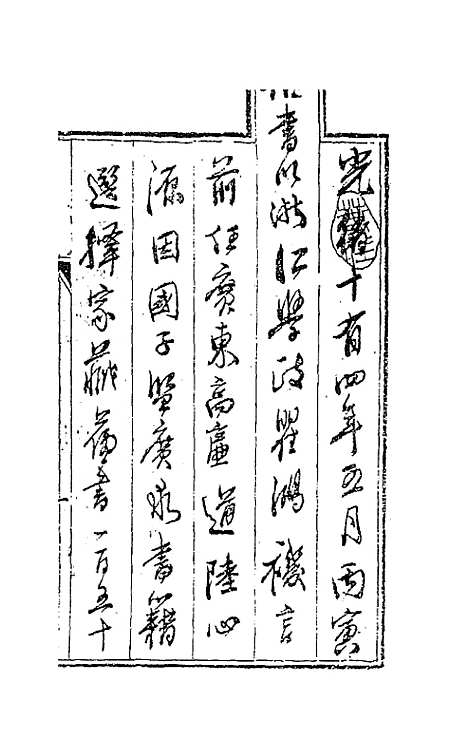 光緒十有四年五月丙寅
書以浙江學政瞿鴻禨言
前任廣東高廉道陸心
源因國子監廣求書籍
選擇家藏舊書一百五十